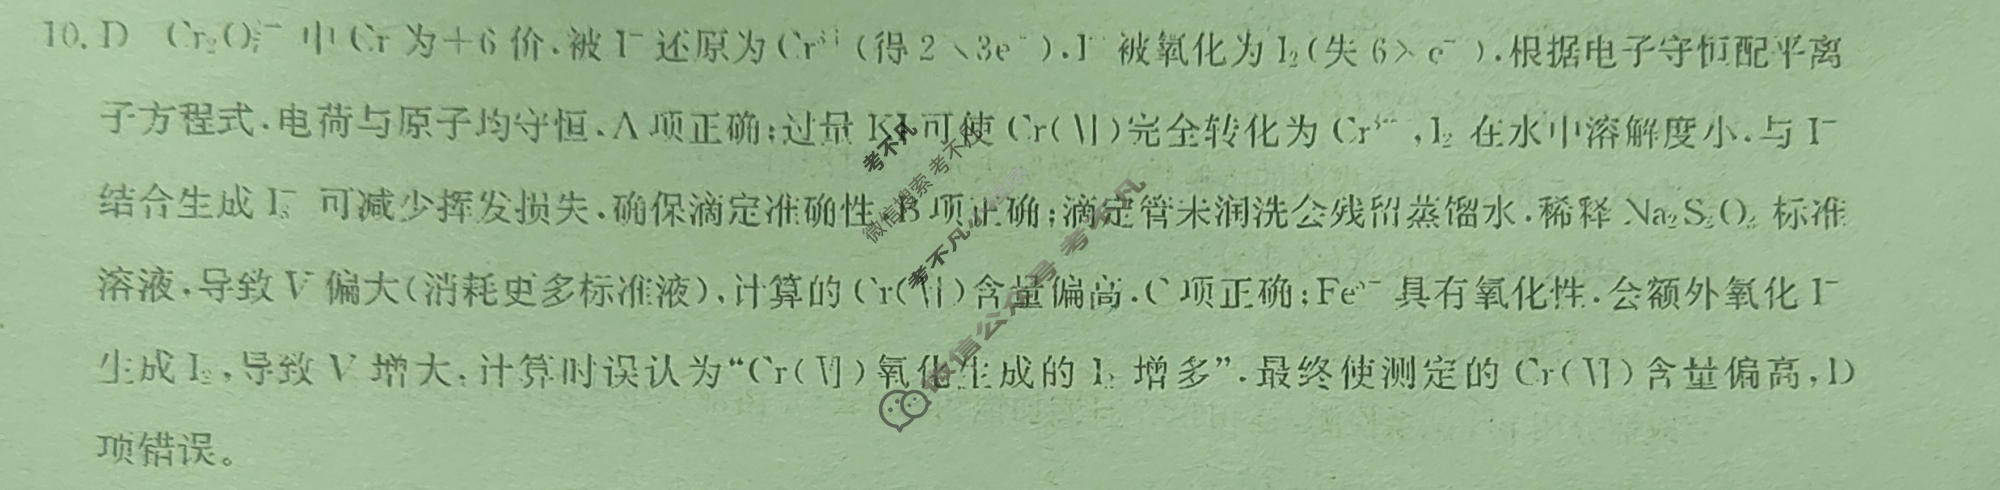 10. D Cr₂O₇²⁻ 中 Cr 为+6 价,被 I⁻ 还原为 Cr³⁺(得 2×3e⁻),I⁻ 被氧化为 I₂(失 6×e⁻),根据电子守恒配平离
子方程式,电荷与原子均守恒,A 项正确;过量 KI 可使 Cr(Ⅵ)完全转化为 Cr³⁺,I₂ 在水中溶解度小,与 I⁻
结合生成 I₃⁻ 可减少挥发损失,确保滴定准确性,B 项正确;滴定管未润洗会残留蒸馏水,稀释 Na₂S₂O₃ 标准
溶液,导致 V 偏大(消耗更多标准液),计算的 Cr(Ⅵ)含量偏高,C 项正确;Fe³⁺ 具有氧化性,会额外氧化 I⁻
生成 I₂,导致 V 增大,计算时误认为“Cr(Ⅵ)氧化生成的 I₂ 增多”,最终使测定的 Cr(Ⅵ)含量偏高,D
项错误。
考不凡
微信搜索 考不凡
考不凡
微信公众号 考不凡